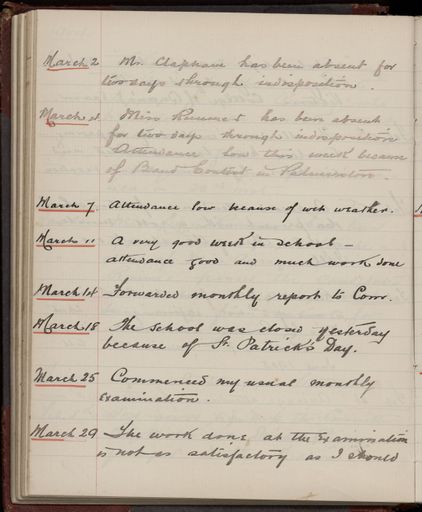 March 2 Mr. Clapham has been absent for
two days through indisposition.
March 4 Miss has been absent
for two days through indisposition
Attendance low this week because
of Band Contest in Palmerston.
March 7 Attendance low because of wet weather.
March 11 A very good week in school –
attendance good and much work done
March 14 Forwarded monthly report to Com.
March 18 The School was closed yesterday
because of St. Patrick's Day.
March 25 Commenced my usual monthly
examination.
March 29 The work done at the Examination
is not as satisfactory as I should